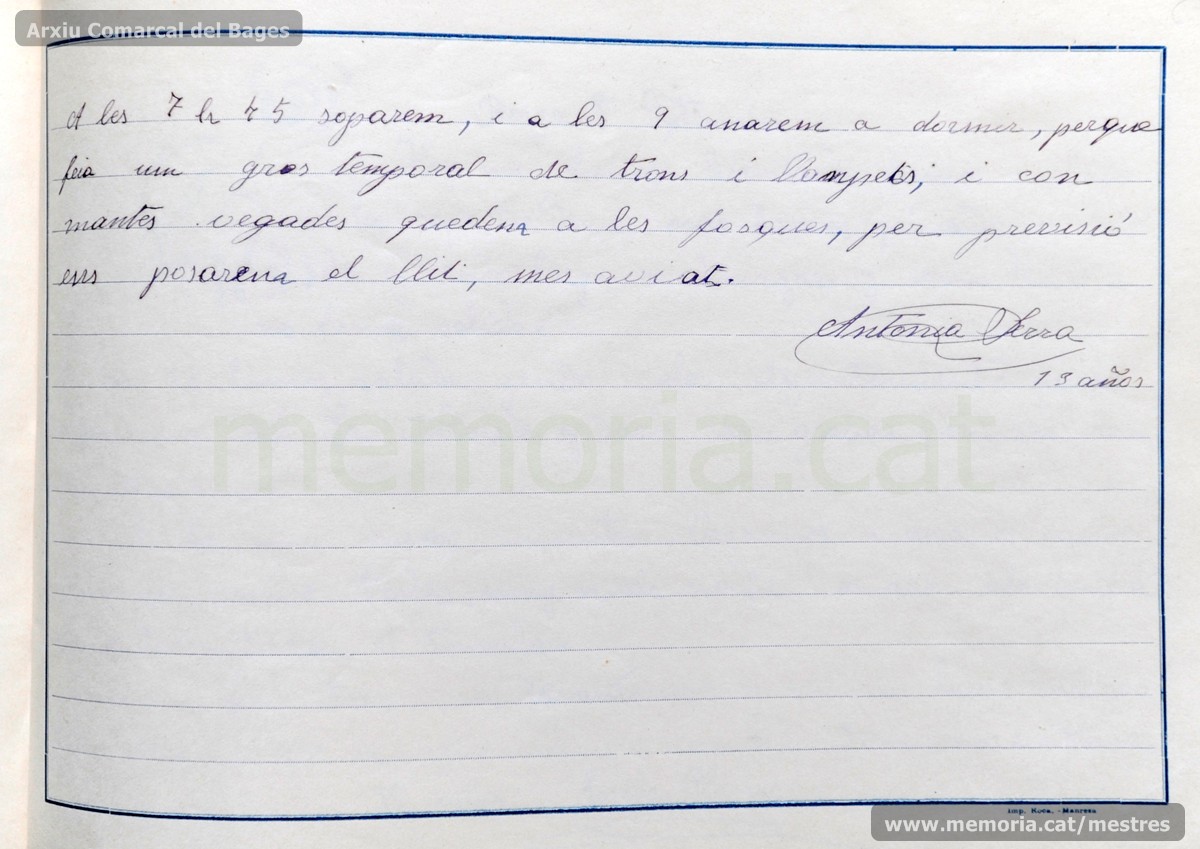 Arxiu Comarcal del Bages
A les 7 h 45 soparem, i a les 9 anarem a dormir, perque
feia um gros temporal de trons i llampecs, i con
mantes vegades quedem a les fosques, per previsió
ens posarem al llit, mes aviat.
Antonia Serra
13 años
memoria.cat
Imp. Roca. - Manresa
www.memoria.cat/mestres